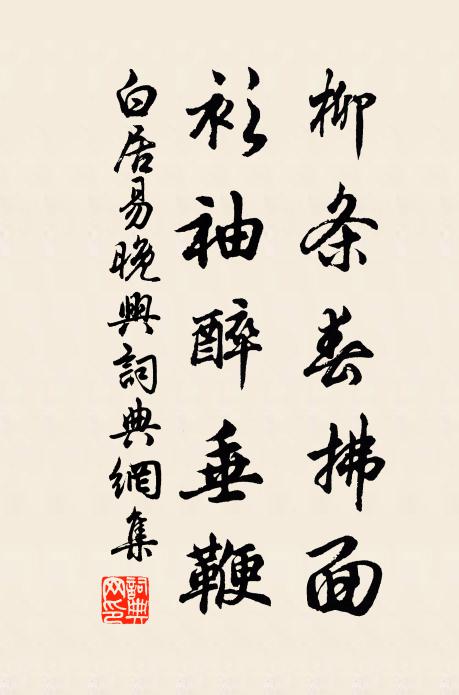 柳条春拂面
衫袖醉垂鞭
白居易晚興詞典網集
詞典网印